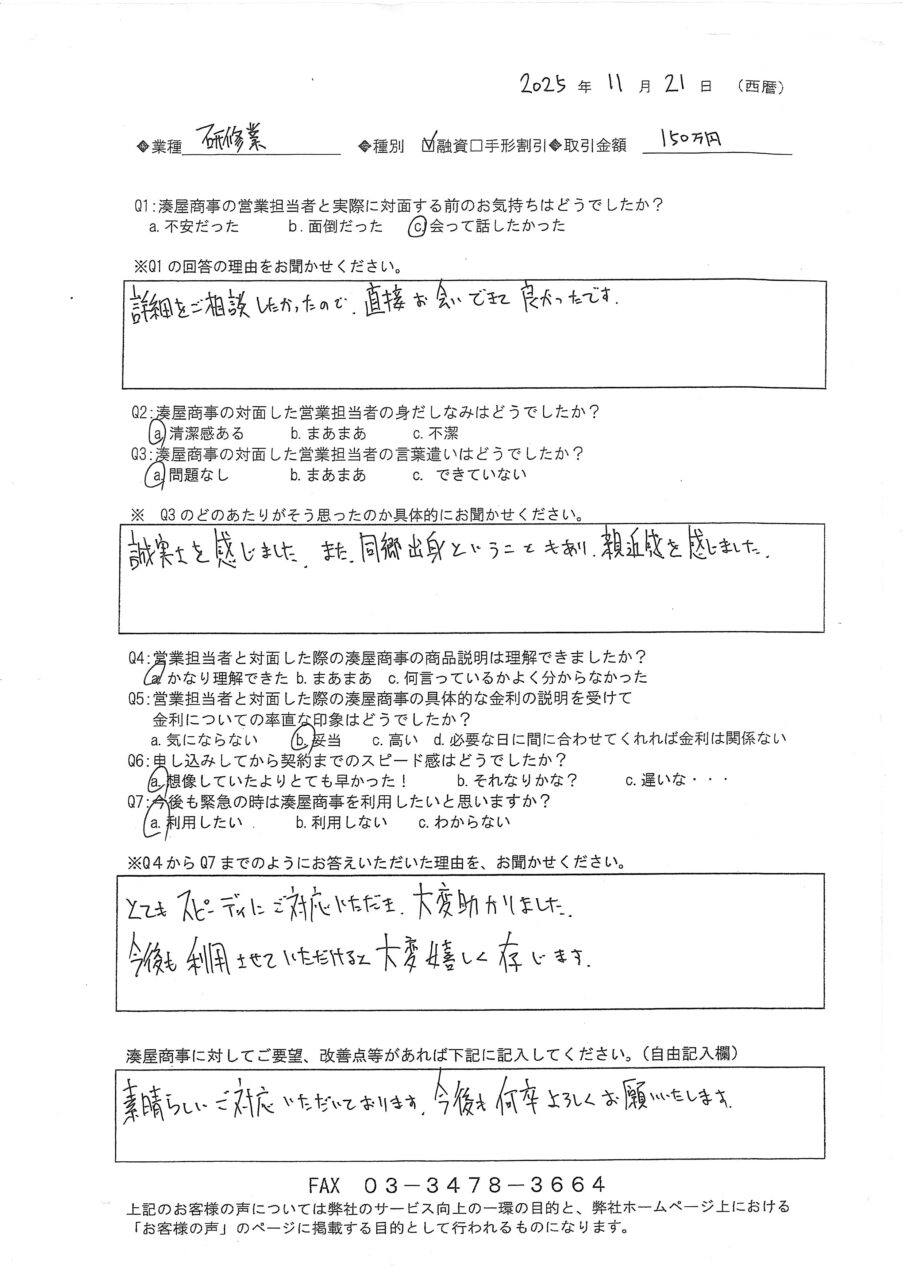 2025 年 11 月 21 日 （西暦）
◆業種 研修業 ◆種別 ☑融資□手形割引◆取引金額 150万円
Q1:湊屋商事の営業担当者と実際に対面する前のお気持ちはどうでしたか？
a.不安だった b.面倒だった c.会って話したかった
※Q1の回答の理由をお聞かせください。
詳細をご相談したかったので、直接お会いできて良かったです。
Q2:湊屋商事の対面した営業担当者の身だしなみはどうでしたか？
a.清潔感ある b.まあまあ c.不潔
Q3:湊屋商事の対面した営業担当者の言葉遣いはどうでしたか？
a.問題なし b.まあまあ c. できていない
※ Q3のどのあたりがそう思ったのか具体的にお聞かせください。
誠実さを感じました。また、同郷出身ということもあり、親近感を感じました。
Q4:営業担当者と対面した際の湊屋商事の商品説明は理解できましたか？
a.かなり理解できた b.まあまあ c.何言っているかよく分からなかった
Q5:営業担当者と対面した際の湊屋商事の具体的な金利の説明を受けて
金利についての率直な印象はどうでしたか？
a.気にならない b.妥当 c.高い d.必要な日に間に合わせてくれれば金利は関係ない
Q6:申し込みしてから契約までのスピード感はどうでしたか？
a.想像していたよりとても早かった！ b.それなりかな？ c.遅いな・・・
Q7:今後も緊急の時は湊屋商事を利用したいと思いますか？
a.利用したい . b.利用しない c.わからない
※Q4からQ7までのようにお答えいただいた理由を、お聞かせください。
とてもスピーディにご対応いただき、大変助かりました。
今後も利用させていただけると大変嬉しく存じます。
湊屋商事に対してご要望、改善点等があれば下記に記入してください。（自由記入欄）
素晴らしいご対応いただいております。今後も何卒よろしくお願いいたします。
FAX 03－3478－3664
上記のお客様の声については弊社のサービス向上の一環の目的と、弊社ホームページ上における
「お客様の声」のページに掲載する目的として行われるものになります。